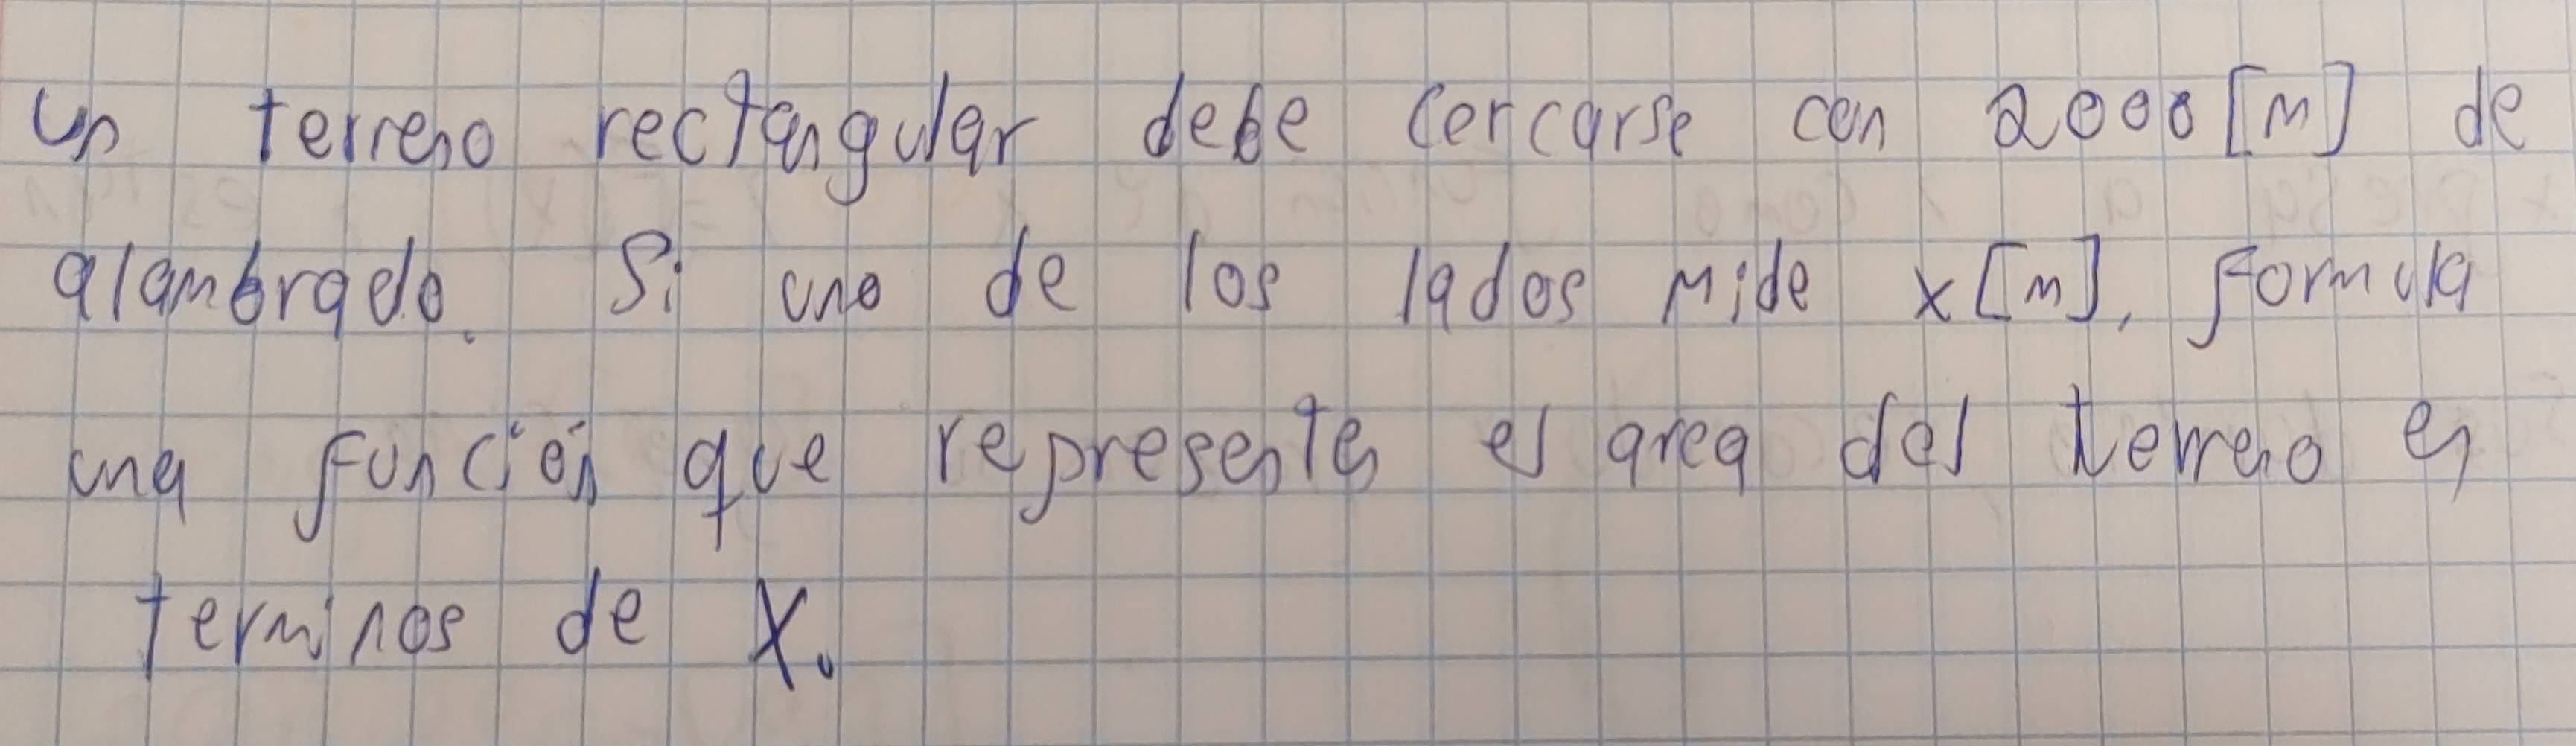 un terreno rectangular debe cercarse con 2000 [m] de
alambrado. Si uno de los lados mide x [m], formula
una función que represente el area del terreno en
terminos de X.